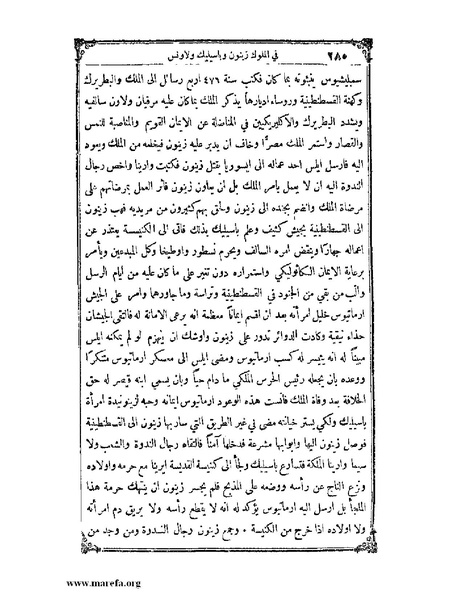 ٢٨٥ في الملوك زينون وباسيليك ولاونس
سمبليشيوس ينبئونه بما كان فكتب سنة ٤٧٦ اربع رسائل الى الملك والبطريرك
وكهنة القسطنطينية وروساء اديارها يذكر الملك بما كان عليه مرقيان ولاون سالفيه
ويشدد البطريرك والاكليريكيين في المناضلة عن الايمان القويم والمناصبة للنمس
والقصار واستمر الملك مصرًّا وخاف ان يدبر عليه زينون فيخلعه من الملك ويعود
اليه فارسل ايلس احد عماله الى ايسوريا بقتل زينون فكتبت وارينا واخص رجال
الندوة اليه ان لا يعمل بامر الملك بل ان يعاون زينون فآثر العمل بمرضاتهم على
مرضاة الملك وانضم بجنده الى زينون ولحق بهم كثيرون من مريديه فهب زينون
الى القسطنطينية بجيش كثيف وعلم باسيليك بذلك فاتى الى الكنيسة يعتذر عن
اعماله جهارًا وينقض امره السالف ويحرم نسطور واوطيخا وكل المبدعين ويأمر
برعاية الايمان الكاثوليكي واستمراره دون تغير على ما كان عليه من ايام الرسل
والّب من بقي من الجنود في القسطنطينية وتراسة وما جاورها وامر على الجيش
ارماتيوس خليل امرأته بعد ان اقسم ايمانًا معظمة انه يرعى الامانة له فالتقى الجيشان
حذاء نيقية وكادت الدوائر تدور على زينون واوشك ان ينهزم لو لم يمكنه ايلس
مبينًا له انه يتيسر له كسب ارماتيوس ومضى ايلس الى معسكر ارماتيوس متنكرًا
ووعده بان يجعله رئيس الحرس الملكي ما دام حيًّا وبان يسمي ابنه قيصر له حق
الخلافة بعد وفاة الملك فأنست هذه الوعود ارماتيوس ايمانه وحبه لزينونيدة امرأة
باسيليك ولكي يستر خيانته مضى في غير الطريق التي سار بها زينون الى القسطنطينية
فوصل زينون اليها وابوابها مشرعة فدخلها آمنًا فالتقاه رجال الندوة والشعب ولا
سيما وارينا الملكة فتسارع باسيليك ولجأ الى كنيسة القديسة ايرينا مع حرمه واولاده
ونزع التاج عن رأسه ووضعه على المذبح فلم يجسر زينون ان ينتهك حرمة هذا
الملجأ بل ارسل اليه ارماتيوس يؤكد له انه لا يقطع رأسه ولا يريق دم امرأته
ولا اولاده اذا خرج من الكنيسة ٠ وجمع زينون رجال الندوة ومن وجد من
www.marefa.org